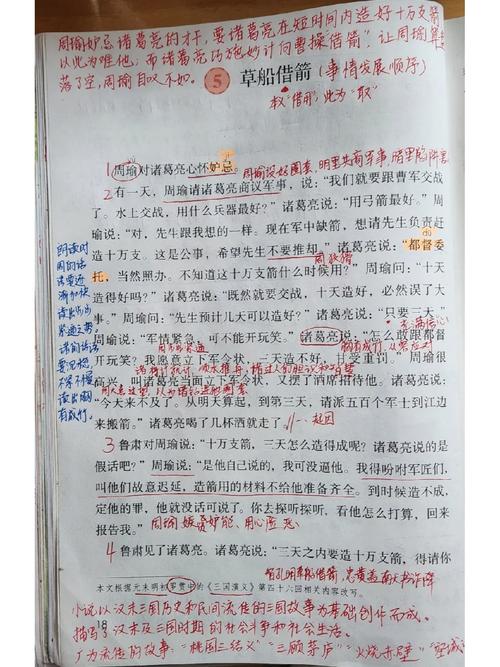 周瑜妒忌诸葛亮的才干,要诸葛亮在短时间内造好十万支箭
以此为难他,而诸葛亮巧施妙计向曹操“借箭”,让周瑜算盘
落了空,周瑜自叹不如。
5 草船借箭 (事情发展顺序)
名“借”,此为“取”
1 周瑜对诸葛亮心怀妒忌。
周瑜设好圈套,明里共商军事,暗里陷阱害
2 有一天,周瑜请诸葛亮商议军事,说:“我们就要跟曹军交战
了。水上交战,用什么兵器最好?”诸葛亮说:“用弓箭最好。”周
瑜说:“对,先生跟我想的一样。现在军中缺箭,想请先生负责赶
造十万支。这是公事,希望先生不要推却。”诸葛亮说:“都督委
托,当然照办。不知道这十万支箭什么时候用?”周瑜问:“十天
造得好吗?”诸葛亮说:“既然就要交战,十天造好,必然误了大
事。”周瑜问:“先生预计几天可以造好?”诸葛亮说:“只要三天。”
充满信心
周瑜说:“军情紧急,可不能开玩笑。”诸葛亮说:“怎么敢跟都督
开玩笑?我愿意立下军令状,三天造不好,甘受重罚。”周瑜很
高兴,叫诸葛亮当面立下军令状,又摆了酒席招待他。诸葛亮说:
“今天来不及了。从明天起,到第三天,请派五百个军士到江边
来搬箭。”诸葛亮喝了几杯酒就走了。
起因
朗读时
周的话
语要逐
渐加快
3 鲁肃对周瑜说:“十万支箭,三天怎么造得成呢?诸葛亮说的是
假话吧?”周瑜说:“是他自己说的,我可没逼他。我得吩咐军匠们,
叫他们故意迟延,造箭用的材料不给他准备齐全。到时候造不成,
定他的罪,他就没话可说了。你去探听探听,看他怎么打算,回来
报告我。”
周瑜嫉贤妒能、用心险恶
4 鲁肃见了诸葛亮。诸葛亮说:“三天之内要造十万支箭,得请你
本文根据元末明初罗贯中的《三国演义》第四十六回相关内容改写。
18
小说以汉末三国历史和民间流传的三国故事为基础创作而成。
描写了汉末及三国时期的社会斗争和社会生活。
广为流传的故事:“桃园三结义”“三顾茅庐”“火烧赤壁”“空城